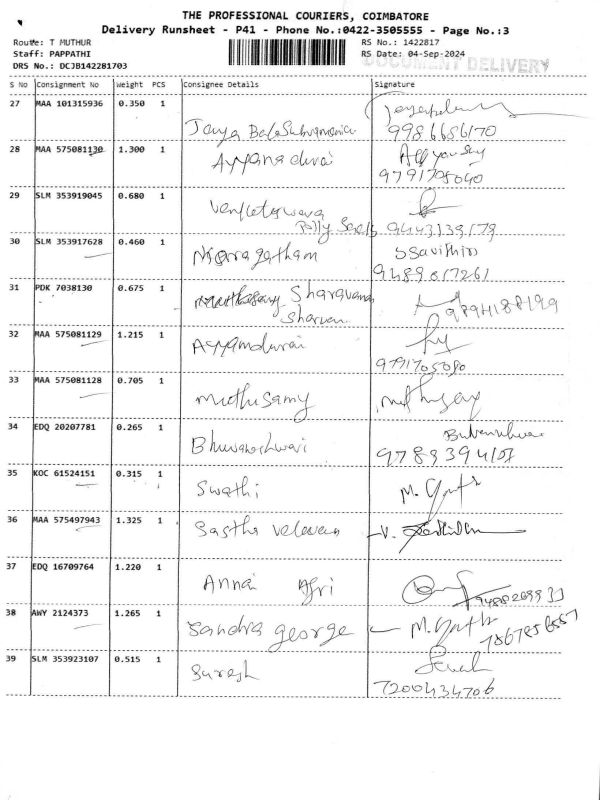 THE PROFESSIONAL COURIERS, COIMBATORE
Delivery Runsheet - P41 - Phone No.:0422-3505555 - Page No.:3
Route: T MUTHUR RS No.: 1422817
Staff: PAPPATHI RS Date: 04-Sep-2024
DOCUMENT DELIVERY
DRS No.: DCJB142281703
S No Consignment No Weight PCS Consignee Details Signature
27 MAA 101315936 0.350 1
Jaya Balasubramania 9986686170
28 MAA 575081130 1.300 1
Ayyanadurai 9791705040
29 SLM 353919045 0.680 1
Venkateswara
9443139179
30 SLM 353917628 0.460 1 SSavithiri
9489617261
31 PDK 7038130 0.675 1
Sharavana 9894188199
Sharvan
32 MAA 575081129 1.215 1
Ayyamdurai
9791705080
33 MAA 575081128 0.705 1
Muthusamy
34 EDQ 20207781 0.265 1
Bhuvaneshwari
35 KOC 61524151 0.315 1
Swathi
36 MAA 575497943 1.325 1
Sastha Velavan
37 EDQ 16709764 1.220 1
Annai Agri
38 AWY 2124373 1.265 1
Sandra george
39 SLM 353923107 0.515 1
Suresh
7200434706